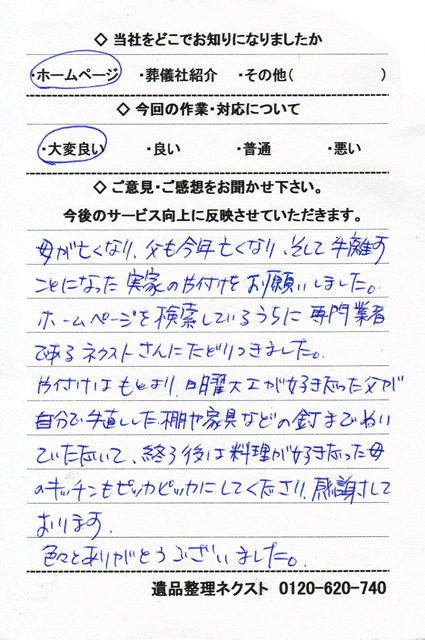 ◇ 当社をどこでお知りになりましたか
・ホームページ ・葬儀社紹介 ・その他( )
◇ 今回の作業・対応について
・大変良い ・良い ・普通 ・悪い
◇ ご意見・ご感想をお聞かせ下さい。
今後のサービス向上に反映させていただきます。
母が亡くなり、父も今年亡くなり、そして手離す
ことになった実家の片付けをお願いしました。
ホームページを検索しているうちに専門業者
であるネクストさんにたどりつきました。
片付けはもとより、日曜大工が好きだった父が
自分で手直しした棚や家具などの釘までぬい
ていただいて、終了後は料理が好きだった母
のキッチンもピッカピッカにしてくださり、感謝して
おります。
色々とありがとうございました。
遺品整理ネクスト 0120-620-740